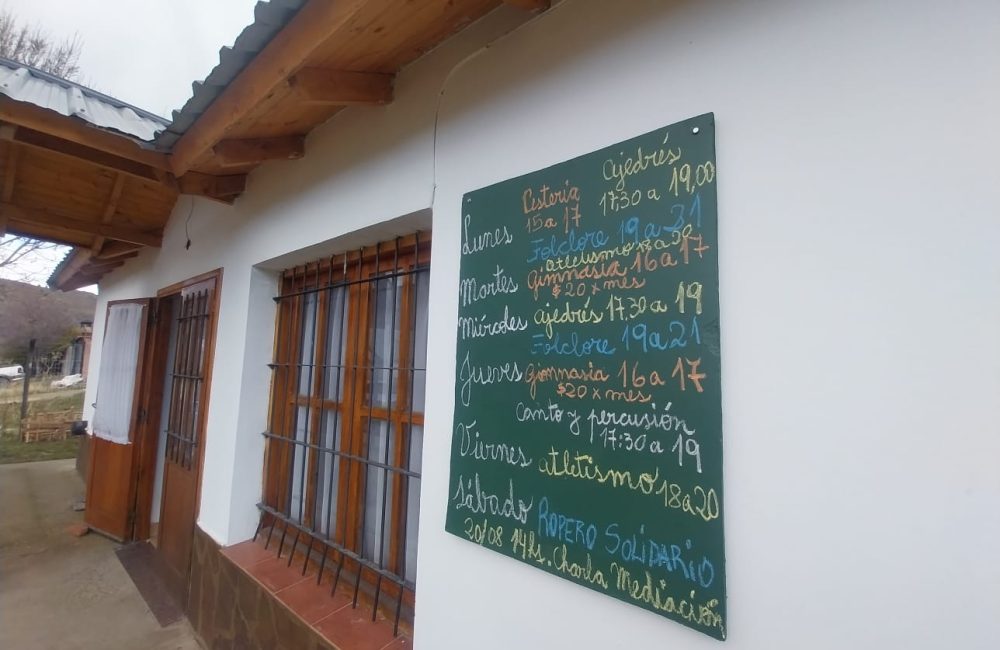 Lunes Cestería Ajedrés
15 a 17 17:30 a 19,00
Folclore 19 a 21
atletismo 18 a 20
Martes Gimnasia 16 a 17
$20 x mes
Miércoles ajedrés 17.30 a 19
Folclore 19 a 21
Jueves Gimnasia 16 a 17
$20 x mes
Canto y percusión
17:30 a 19
Viernes atletismo 18 a 20
Sábado ROPERO SOLIDARIO
20/08 14hs. Charla Mediación